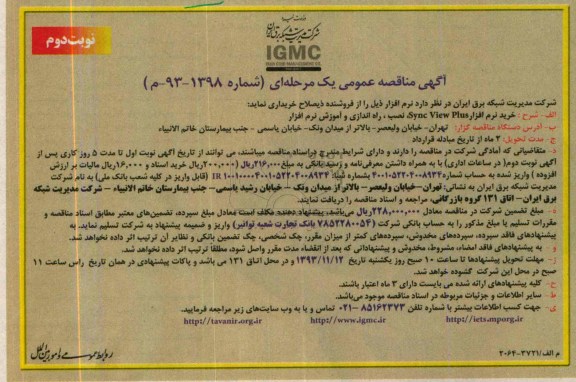 نوبت دوم
وزارت نیرو
شرکت مدیریت شبکه برق ایران
IGMC
IRAN GRID MANAGEMENT CO.
آگهی مناقصه عمومی یک مرحله‌ای (شماره ۱۳۹۸-۹۳-م)
شرکت مدیریت شبکه برق ایران در نظر دارد نرم افزار ذیل را از فروشنده ذیصلاح خریداری نماید:
الف - شرح : خرید نرم افزار Sync View Plus، نصب ، راه اندازی و آموزش نرم افزار
ب- آدرس دستگاه مناقصه گزار: تهران- خیابان ولیعصر- بالاتر از میدان ونک- خیابان یاسمی - جنب بیمارستان خاتم الانبیاء
ج - مدت تحویل: ۲ ماه از تاریخ مبادله قرارداد
د- متقاضیانی که آمادگی شرکت در مناقصه را دارند و دارای شرایط مندرج در اسناد مناقصه میباشند، می توانند از تاریخ آگهی نوبت اول تا مدت ۵ روز کاری پس از
آگهی نوبت دوم( در ساعات اداری) با به همراه داشتن معرفی‌نامه و رسید بانکی به مبلغ ۲۱۶,۰۰۰ریال (۲۰۰,۰۰۰ریال خرید اسناد و ۱۶,۰۰۰ریال مالیات بر ارزش
افزوده ) واریز شده به حساب شماره ۴۰۰۱۰۵۲۲۰۴۰۰۸۹۳۴ بشماره شبا: IR (قابل واریز در کلیه شعب بانک ملی) به نام شرکت
مدیریت شبکه برق ایران به نشانی: تهران-خیابان ولیعصر – بالاتر از میدان ونک – خیابان رشید یاسمی– جنب بیمارستان خاتم الانبیاء – شرکت مدیریت شبکه
برق ایران- اتاق ۱۳۱ گروه بازرگانی، مراجعه و اسناد مناقصه را دریافت نمایند.
ه - مبلغ تضمین شرکت در مناقصه معادل ۲۲۸,۰۰۰,۰۰۰ریال می‌باشد. پیشنهاد دهنده مکلف است معادل مبلغ سپرده، تضمین‌های معتبر مطابق اسناد مناقصه و
مقررات تسلیم یا مبلغ مذکور را به حساب بانکی شرکت (۷۸۵۲۲۸۰۰۵۴ بانک تجارت شعبه توانیر) واریز و ضمیمه پیشنهاد به شرکت تسلیم نماید. به
پیشنهادهای فاقد سپرده، سپرده‌های مخدوش، سپرده‌های کمتر از میزان مقرر، چک شخصی، چک تضمین بانکی و نظایر آن ترتیب اثر داده نخواهد شد.
و - به پیشنهادهای فاقد امضاء، مشروط، مخدوش و پیشنهاداتی که بعد از انقضاء مدت مقرر واصل شود، مطلقاً ترتیب اثر داده نخواهد شد.
ز- مهلت تحویل پیشنهادها تا ساعت ۱۰ صبح روز یکشنبه تاریخ ۱۳۹۳/۱۱/۱۲ و در محل اتاق ۱۳۱ می باشد و پاکات پیشنهادی در همان تاریخ راس ساعت ۱۱
صبح در محل این شرکت گشوده خواهد شد.
ح- کلیه پیشنهادهای ارائه شده می بایست دارای ۳ ماه اعتبار باشند.
ط - سایر اطلاعات و جزئیات مربوطه در اسناد مناقصه موجود می‌باشد.
ی- جهت کسب اطلاعات بیشتر با شماره تلفن ۸۵۱۶۲۳۷۳ -۰۲۱ تماس و یا به وب سایت‌های زیر مراجعه فرمایید.
http://iets.mporg.ir http://www.igmc.ir http://tavanir.org.ir
روابط عمومی و امور بین الملل
م الف/۳۷۲۱-۲۰۶۴